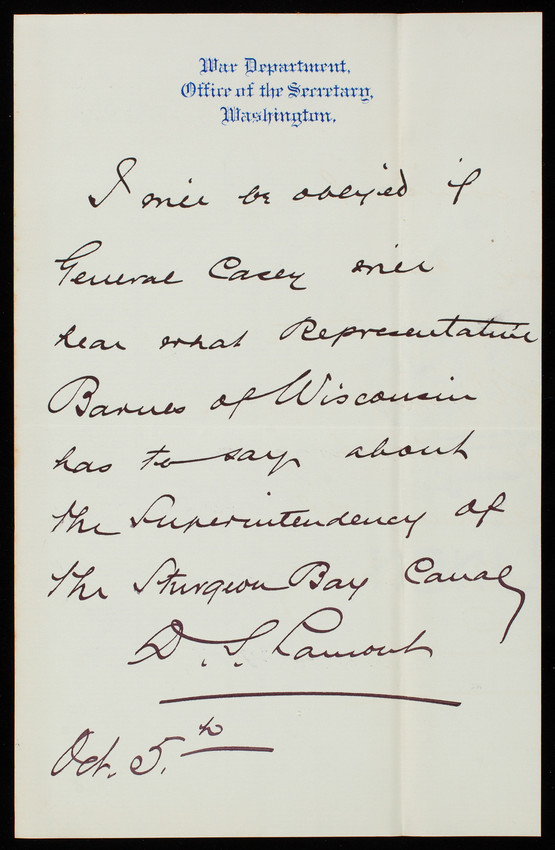 War Department,
Office of the Secretary,
Washington.
I will be obliged if
General Casey will
hear what Representative
Barnes of Wisconsin
has to say about
the Superintendency of
the Sturgeon Bay Canal
D. S. Lamont
Oct. 5.th